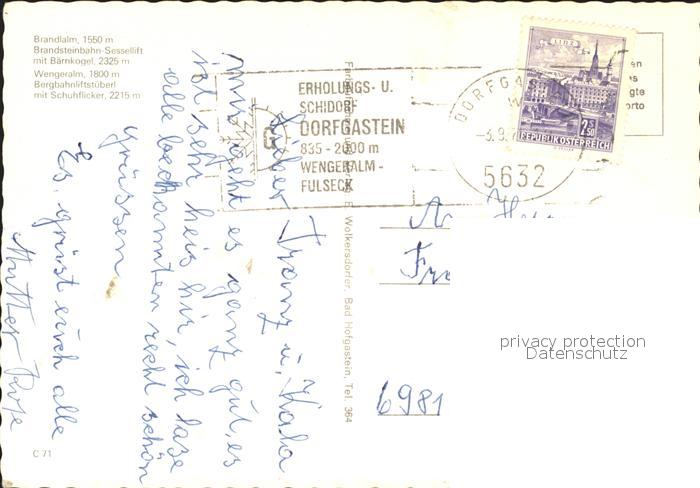 Brandlalm, 1550 m
Brandsteinbahn-Sessellift
mit Bärnkogel, 2325 m
Wengeralm, 1800 m
Bergbahnliftstüberl
mit Schuhflicker, 2215 m
ERHOLUNGS- U.
SCHIDORF
DORFGASTEIN
835 - 2000 m
WENGERALM -
FULSECK
DORFGA
5632
LINZ
2 S 50
REPUBLIK ÖSTERREICH
en
s
gte
orto
Lieber Franz u,
mir geht es ganz gut, es
ist sehr heis hir, ich lase
alle bechannten recht schön
grüssen
Es. grüst euch alle
Mutter Rosa
E. Wolkersdorfer, Bad Hofgastein, Tel. 364
An Herr
Fr
6981
privacy protection
Datenschutz
C 71